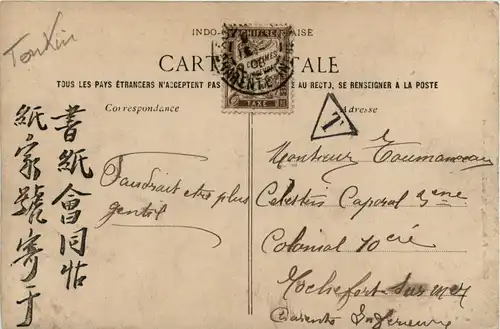 Tonkin
INDO- AISE
CART TALE
TOUS LES PAYS ÉTRANGERS N'ACCEPTENT PAS AU RECTO, SE RENSEIGNER A LA POSTE
Correspondance
Adresse
CHIFFRE
TAXE
T
書紙會同帖
紙家號寄于
Faudrait etre plus
gentil
Monsieur Toumaneau
Celestin Caporal 3eme
Colonial 10 cie
Rochefort sur mer
Charente Inferieure